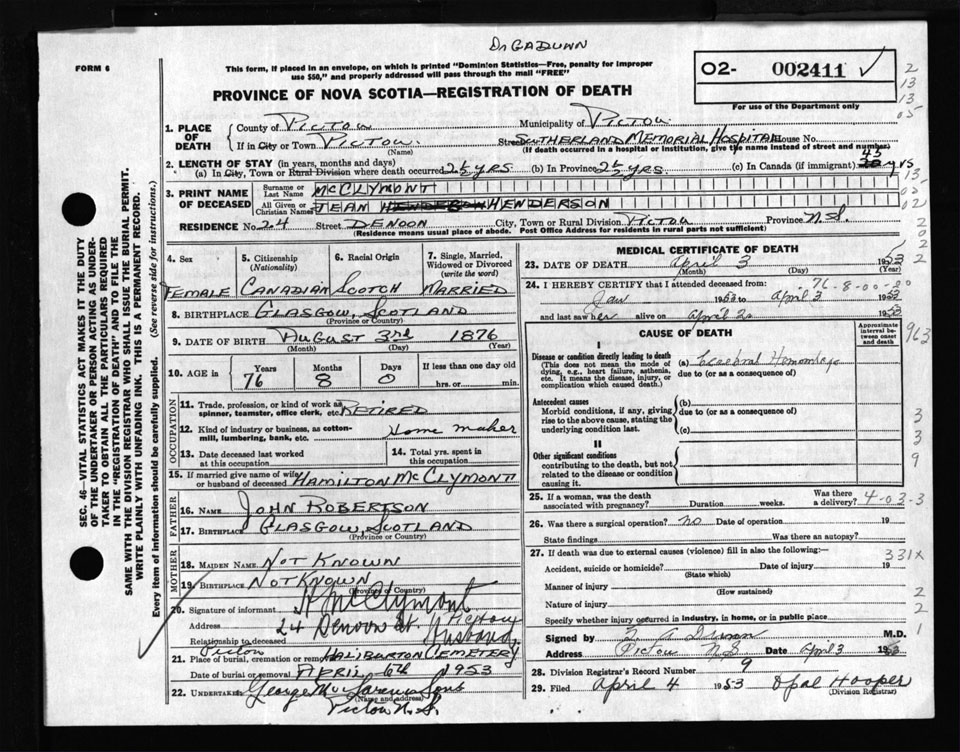 Dr GADUNN
FORM 6
This form, if posted in an envelope, on which is printed "Dominion Statistics—Free, penalty for improper
use $50," and properly addressed will pass through the mail "FREE"
02- 002411 ✓
For use of the Department only
PROVINCE OF NOVA SCOTIA—REGISTRATION OF DEATH
1. PLACE OF DEATH
County of PICTOU Municipality of PICTOU
If in City or Town PICTOU (Name) Street SUTHERLAND MEMORIAL HOSPITAL House No.
(If death occurred in a hospital or institution, give the name instead of street and number)
2. LENGTH OF STAY (in years, months and days)
(a) In City, Town or Rural Division where death occurred 25 yrs (b) In Province 25 yrs (c) In Canada (if immigrant) 45 yrs
3. PRINT NAME OF DECEASED
Surname or Last Name McCLYMONT
All Given or Christian Names JEAN HENDERSON HENDERSON
RESIDENCE No. 24 Street DENOON City, Town or Rural Division PICTOU Province N.S.
(Residence means usual place of abode. Post Office Address for residents in rural parts not sufficient)
4. Sex
FEMALE
5. Citizenship (Nationality)
CANADIAN
6. Racial Origin
SCOTCH
7. Single, Married, Widowed or Divorced (write the word)
MARRIED
8. BIRTHPLACE GLASGOW, SCOTLAND
(Province or Country)
9. DATE OF BIRTH AUGUST 3rd 1876
(Month) (Day) (Year)
10. AGE in Years 76 Months 8 Days 0 If less than one day old hrs. or min.
OCCUPATION
11. Trade, profession, or kind of work as spinner, teamster, office clerk, etc. RETIRED
12. Kind of industry or business, as cotton-mill, lumbering, bank, etc. Home maker
13. Date deceased last worked at this occupation
14. Total yrs. spent in this occupation
15. If married give name of wife or husband of deceased HAMILTON McCLYMONT
FATHER
16. Name JOHN ROBERTSON
17. Birthplace GLASGOW, SCOTLAND
(Province or Country)
MOTHER
18. MAIDEN NAME NOT KNOWN
19. BIRTHPLACE NOT KNOWN
(Province or Country)
20. Signature of informant H McClymont
Address 24 Denoon St. Pictou
Relationship to deceased Husband
21. Place of burial, cremation or removal Pictou HALIBURTON CEMETERY
Date of burial or removal APRIL 6th 1953
22. UNDERTAKER George McLaren & Sons
(Name and address)
Pictou N.S.
MEDICAL CERTIFICATE OF DEATH
23. DATE OF DEATH April 3 1953
(Month) (Day) (Year)
24. I HEREBY CERTIFY that I attended deceased from: 76-8-00-00
Jan 1953 to April 3 1953
and last saw her alive on April 2 1953
CAUSE OF DEATH
Approximate interval between onset and death
I
Disease or condition directly leading to death
(This does not mean the mode of dying, e.g., heart failure, asthenia, etc. It means the disease, injury, or complication which caused death.)
(a) Cerebral Hemorrhage
due to (or as a consequence of)
Antecedent causes
Morbid conditions, if any, giving rise to the above cause, stating the underlying condition last.
(b)
due to (or as a consequence of)
(c)
II
Other significant conditions
contributing to the death, but not related to the disease or condition causing it.
25. If a woman, was the death associated with pregnancy? Duration weeks. Was there a delivery? 4-03-3
26. Was there a surgical operation? no Date of operation 19
State findings Was there an autopsy?
27. If death was due to external causes (violence) fill in also the following:— 331X
Accident, suicide or homicide? Date of injury 19
(State which)
Manner of injury
(How sustained)
Nature of injury
Specify whether injury occurred in industry, in home, or in public place
Signed by G A Dunn M.D.
Address Pictou NS Date April 3 1953
28. Division Registrar's Record Number 9
29. Filed April 4 1953 Opal Hooper
(Division Registrar)
2
13
13
05
13
02
2
0
2
2
963
3
3
9
2
2
1
SEC. 46—VITAL STATISTICS ACT MAKES IT THE DUTY
OF THE UNDERTAKER OR PERSON ACTING AS UNDER-
TAKER TO OBTAIN ALL THE PARTICULARS REQUIRED
IN THE "REGISTRATION OF DEATH" AND TO FILE THE
SAME WITH THE DIVISION REGISTRAR WHO SHALL ISSUE THE BURIAL PERMIT.
WRITE PLAINLY WITH UNFADING INK. THIS IS A PERMANENT RECORD.
Every item of information should be carefully supplied. (See reverse side for instructions.)